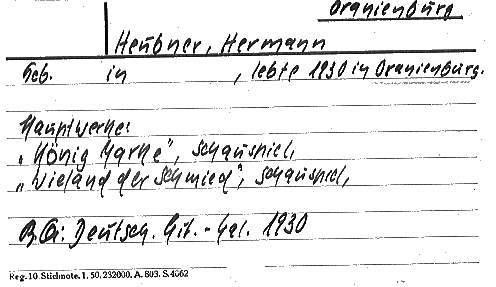 Oranienburg
Heubner, Hermann
Geb. in , lebte 1930 in Oranienburg.
Hauptwerke:
„König Marke", Schauspiel,
„Wieland der Schmied", Schauspiel,
Deutsch. Lit.-Kal. 1930
Reg. 10. Stichnote. 1. 50, 232000. A. 803. S. 4062